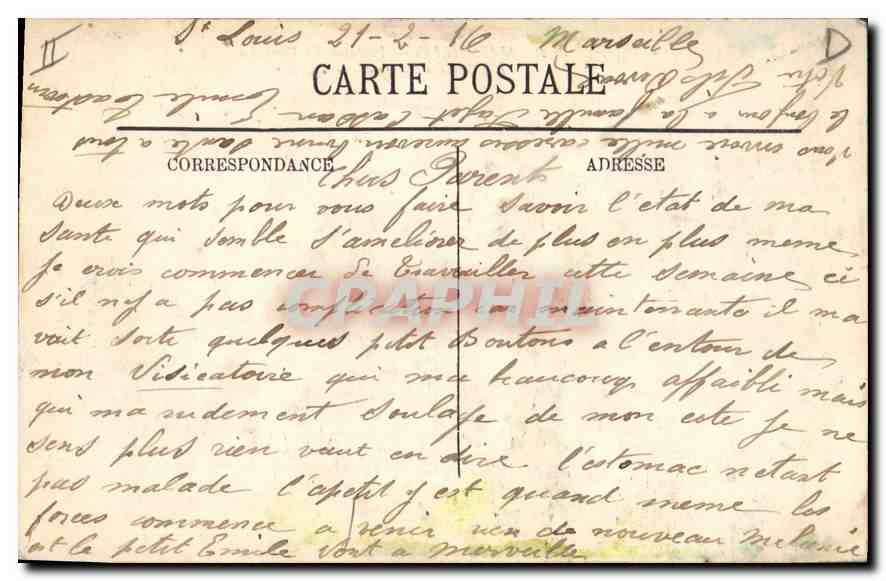 II
D
St Louis 21-2-16 Marseille
CARTE POSTALE
CORRESPONDANCE
ADRESSE
Chers Parents
Deux mots pour vous faire savoir l'etat de ma
sante qui semble s'ameliorer de plus en plus meme
je crois commencer de travailler cette semaine ci
s'il n'y a pas complication car maintenante il ma
vait sorte quelques petit Boutons a l'entour de
mon Visicatoire qui ma beaucoup affaibli mais
qui ma rudement soulage de mon cote Je ne
sens plus rien vaut en dire l'estomac n'etant
pas malade l'apetit y est quand meme les
forces commence a venir rien de nouveau Melanie
et le petit Emile vont a merveille
vous envoie mille caresses bonne sante a tous
le bonjour a la famille
Votre Fils
Emile
CPAPHIL